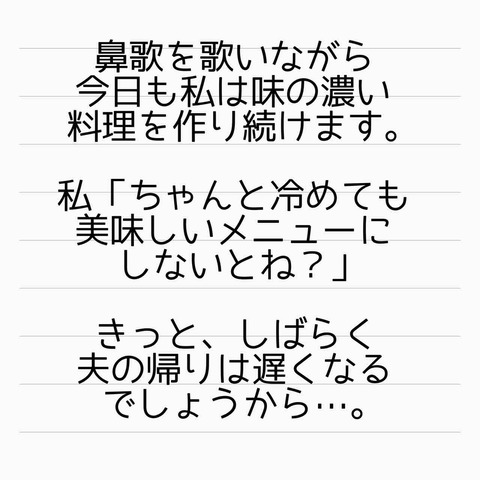 鼻歌を歌いながら
今日も私は味の濃い
料理を作り続けます。
私「ちゃんと冷めても
美味しいメニューに
しないとね？」
きっと、しばらく
夫の帰りは遅くなる
でしょうから…。